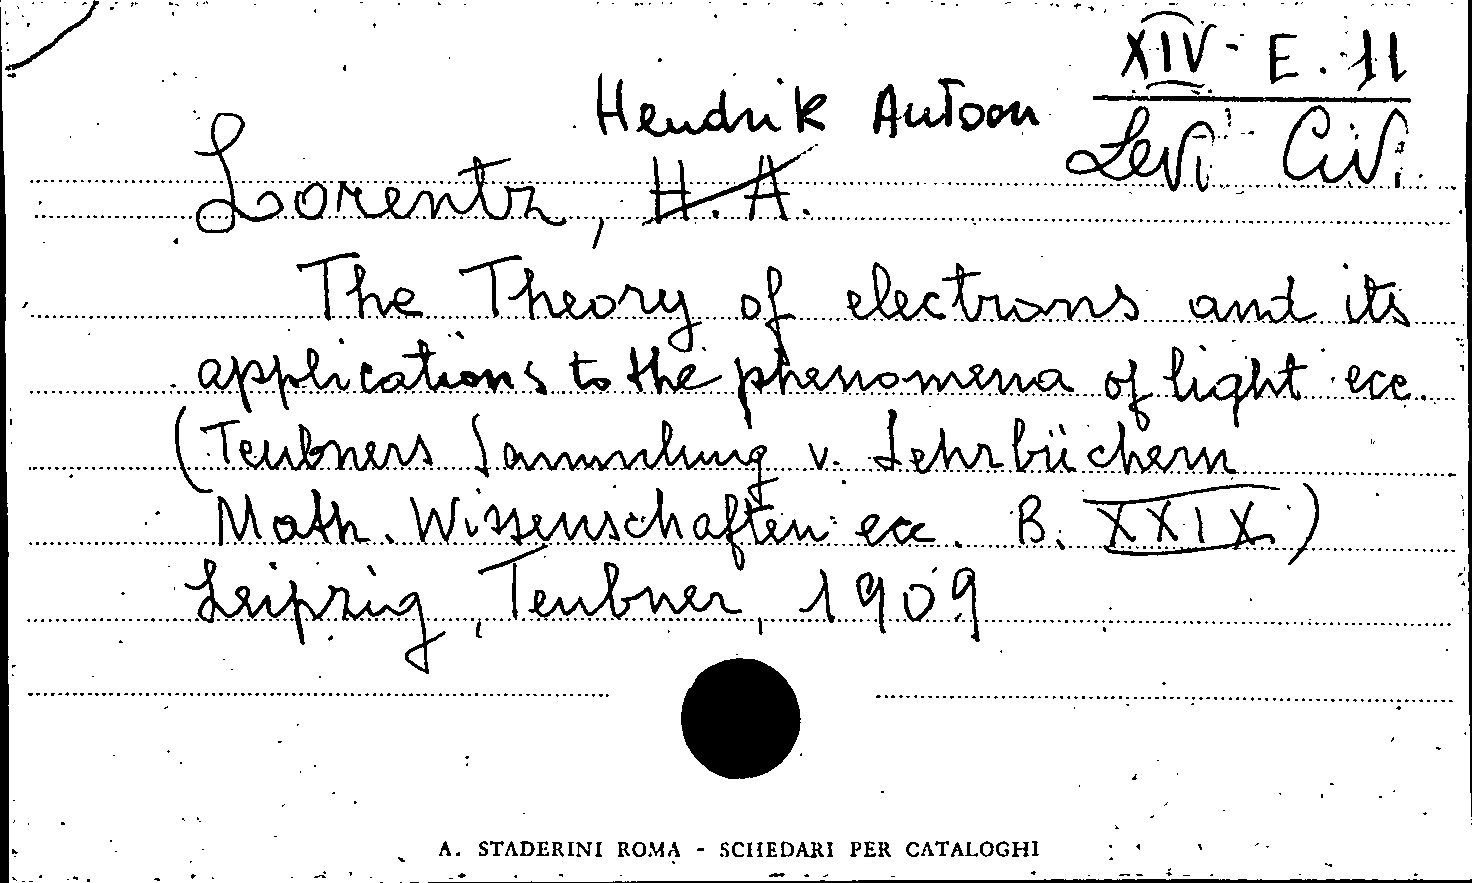 XIV - E. 11
Levi Civ.
Hendrik Antoon
Lorentz, H. A.
The Theory of electrons and its
applications to the phenomena of light ecc.
(Teubners Sammlung v. Lehrbüchern
Math. Wissenschaften ecc. B. XXIX)
Leipzig, Teubner, 1909
A. STADERINI ROMA - SCHEDARI PER CATALOGHI